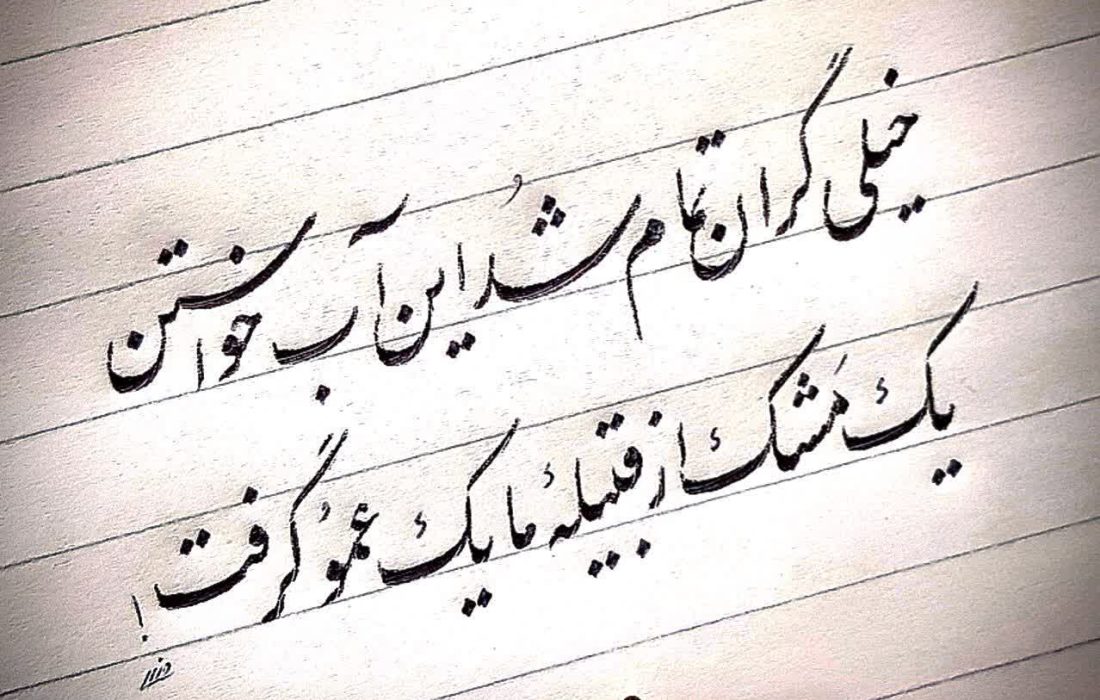 خیلی گران تمام شُد این آب خواستن
یک مَشک از قبیلهٔ ما یک عمو گرفت!